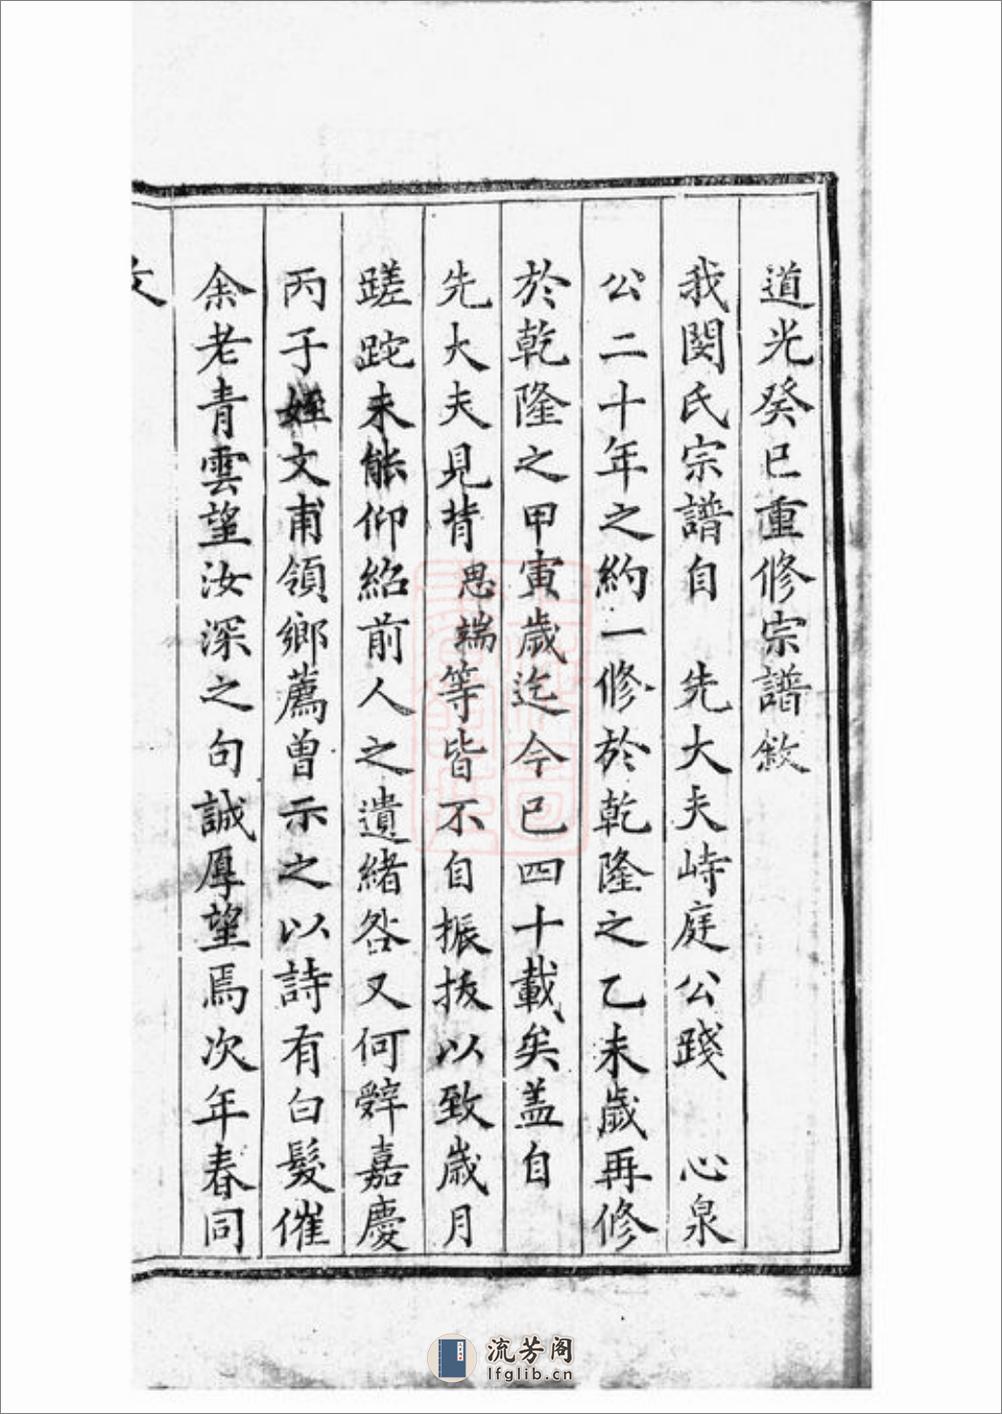 道光癸巳重修宗譜敘
我閔氏宗譜自　先大夫峙庭公踐　心泉
公二十年之約一修於乾隆之乙未歲再修
於乾隆之甲寅歲迄今已四十載矣蓋自
先大夫見背思端等皆不自振拔以致歲月
蹉跎未能仰紹前人之遺緒咎又何辭嘉慶
丙子姪文甫領鄉薦曾示之以詩有白髮催
余老青雲望汝深之句誠厚望焉次年春同
文
流芳阁
lfglib.cn